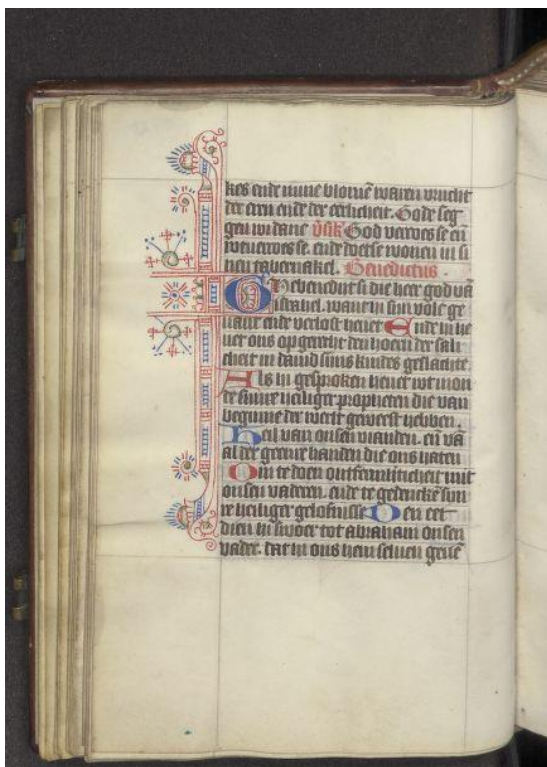 kes ende mine bloemē waren vrucht
der eren ende der eerlicheit. Gode seg
gen wi danc v̄sik God vercoes se eñ
voercoes se. ende doetse wonen in si
nen tabernakel. Benedictus.
Ghebenedijt si die heer god vā
israhel. want hi sijn volc ge
ende verlost hevet Ende hi he
vet ons op gerecht den hoern der sali
cheit in david sijns kindes geslachte.
Als hi gesproken hevet wt mon
de sijnre heiliger propheten die van
beginne der werlt geweest hebben.
Heil van onsen vianden. eñ vā
al der geenre handen die ons haten
Om te doen ontfermherticheit mit
onsen vaderen. ende te gedenckē sijn
re heiliger gelofnisse Den eet
dien hi swoer tot abraham onsen
vader. dat hi ons hem selven geve